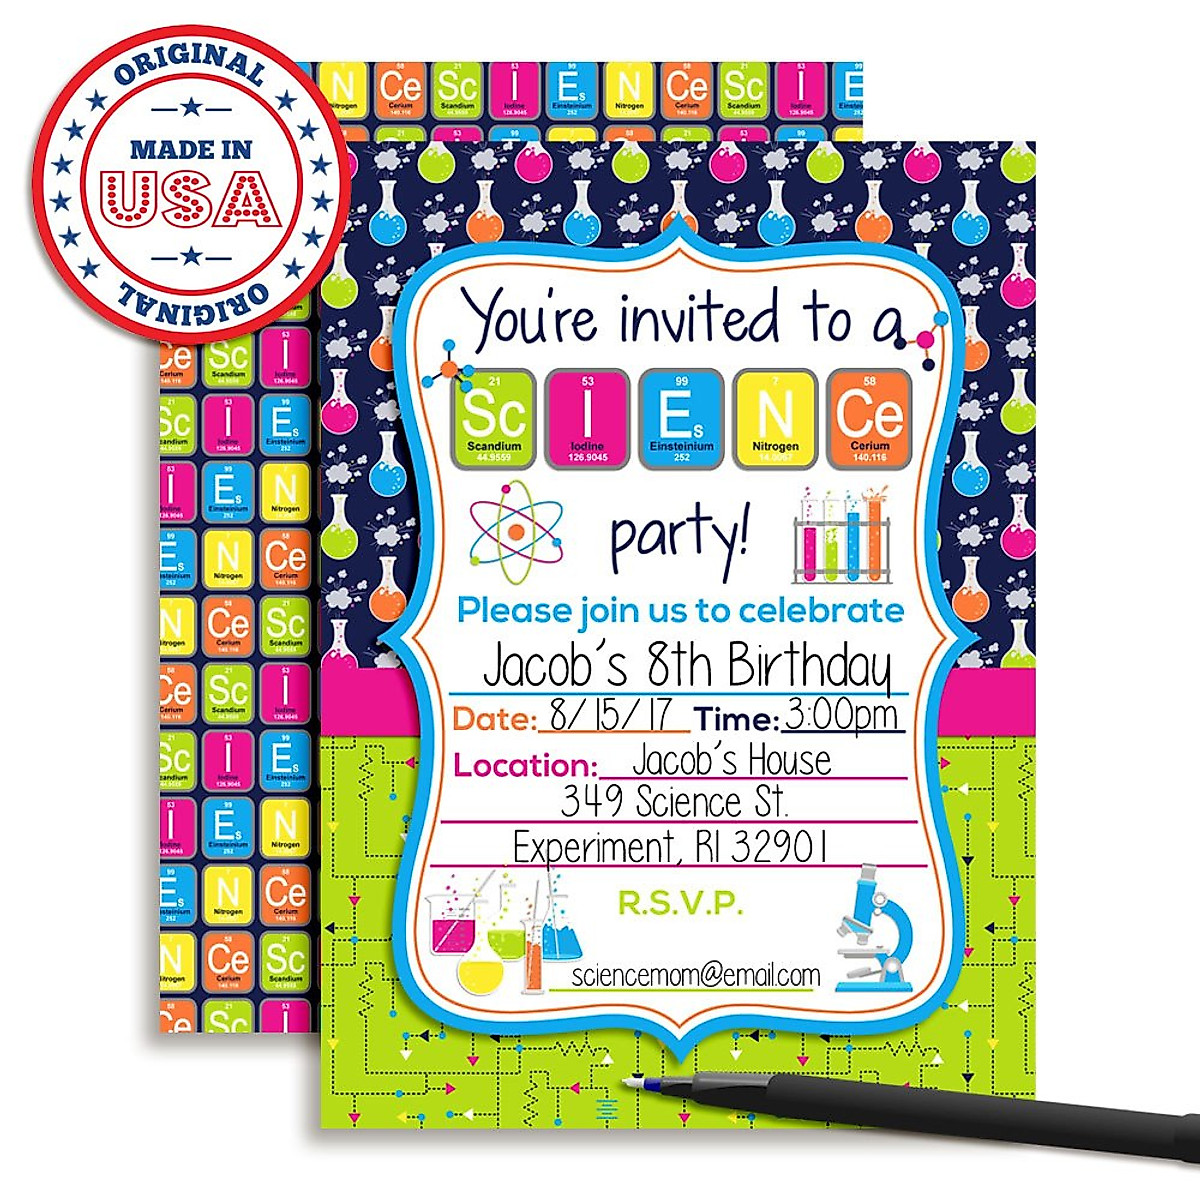 ORIGINAL
MADE IN
USA
ORIGINAL
You're invited to a
21 53 99 7 58
Sc I Es N Ce
Scandium Iodine Einsteinium Nitrogen Cerium
44.9559 126.9045 252 14.0067 140.116
party!
Please join us to celebrate
Jacob's 8th Birthday
Date: 8/15/17 Time: 3:00pm
Location: Jacob's House
349 Science St.
Experiment, RI 32901
R.S.V.P.
sciencemom@email.com